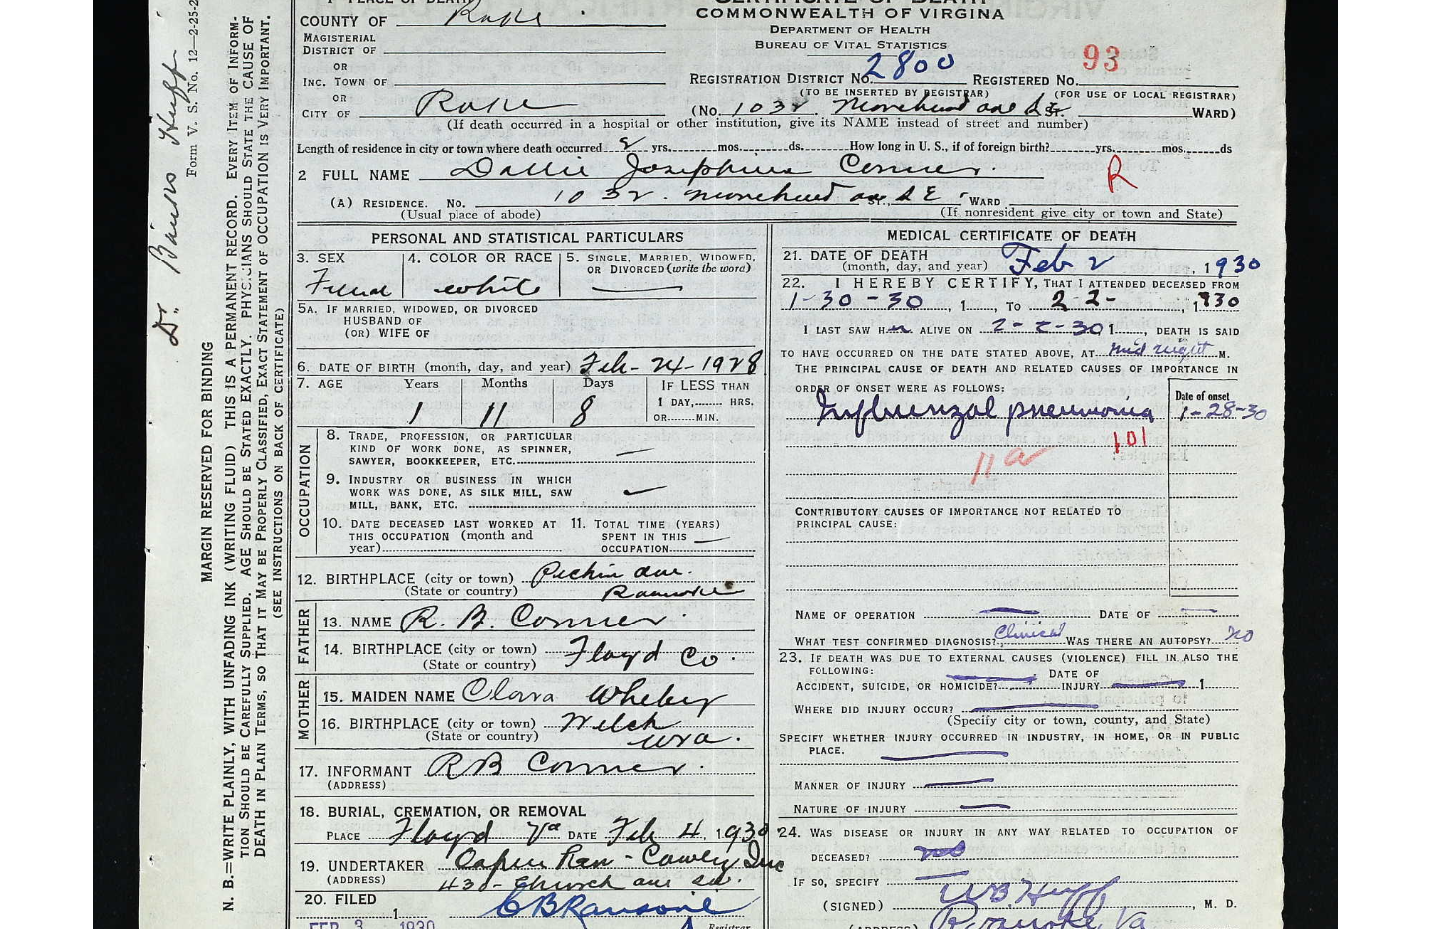 COUNTY OF Roke
COMMONWEALTH OF VIRGINIA
MAGISTERIAL
DISTRICT OF
DEPARTMENT OF HEALTH
BUREAU OF VITAL STATISTICS
OR
INC. TOWN OF
REGISTRATION DISTRICT NO. 2800 REGISTERED NO. 93
(TO BE INSERTED BY REGISTRAR) (FOR USE OF LOCAL REGISTRAR)
OR
CITY OF Roke (No. 1032 Morehead ave S.E. WARD)
(If death occurred in a hospital or other institution, give its NAME instead of street and number)
Length of residence in city or town where death occurred yrs. mos. ds. How long in U. S., if of foreign birth? yrs. mos. ds
2 FULL NAME Dallie Josephine Conner. R
(A) RESIDENCE. No. 1032. Morehead ave S E WARD
(Usual place of abode) (If nonresident give city or town and State)
PERSONAL AND STATISTICAL PARTICULARS
3. SEX
4. COLOR OR RACE
5. SINGLE, MARRIED, WIDOWED, OR DIVORCED (write the word)
Femal white
5A. IF MARRIED, WIDOWED, OR DIVORCED
HUSBAND OF
(OR) WIFE OF
6. DATE OF BIRTH (month, day, and year) Feb- 24-1928
7. AGE Years Months Days IF LESS THAN
1 DAY, HRS.
OR MIN.
1 11 8
OCCUPATION
8. TRADE, PROFESSION, OR PARTICULAR
KIND OF WORK DONE, AS SPINNER,
SAWYER, BOOKKEEPER, ETC.
9. INDUSTRY OR BUSINESS IN WHICH
WORK WAS DONE, AS SILK MILL, SAW
MILL, BANK, ETC.
10. DATE DECEASED LAST WORKED AT
THIS OCCUPATION (month and
year)
11. TOTAL TIME (YEARS)
SPENT IN THIS
OCCUPATION
12. BIRTHPLACE (city or town) Pechin ave.
(State or country) Roanoke
FATHER
13. NAME R. B. Conner
14. BIRTHPLACE (city or town) Floyd Co.
(State or country)
MOTHER
15. MAIDEN NAME Clara
16. BIRTHPLACE (city or town) Welch
(State or country) W Va.
17. INFORMANT R B Conner
(ADDRESS)
18. BURIAL, CREMATION, OR REMOVAL
PLACE Floyd Va DATE Feb 4, 1930
19. UNDERTAKER Oakey Inc
(ADDRESS) 430- Church ave
20. FILED
FEB 3 1 1930 CB Ransone
Registrar
MEDICAL CERTIFICATE OF DEATH
21. DATE OF DEATH
(month, day, and year) Feb 2, 1930
22. I HEREBY CERTIFY, THAT I ATTENDED DECEASED FROM
1-30-30, 1 TO 2 2-, 1930
I LAST SAW H ALIVE ON 2-2-30 1, DEATH IS SAID
TO HAVE OCCURRED ON THE DATE STATED ABOVE, AT mid night M.
THE PRINCIPAL CAUSE OF DEATH AND RELATED CAUSES OF IMPORTANCE IN
ORDER OF ONSET WERE AS FOLLOWS:
Date of onset
Influenzal pneumonia 1-28-30
101
11a
CONTRIBUTORY CAUSES OF IMPORTANCE NOT RELATED TO
PRINCIPAL CAUSE:
NAME OF OPERATION DATE OF
WHAT TEST CONFIRMED DIAGNOSIS? Clinical WAS THERE AN AUTOPSY? no
23. IF DEATH WAS DUE TO EXTERNAL CAUSES (VIOLENCE) FILL IN ALSO THE
FOLLOWING:
ACCIDENT, SUICIDE, OR HOMICIDE? DATE OF INJURY 1
WHERE DID INJURY OCCUR?
(Specify city or town, county, and State)
SPECIFY WHETHER INJURY OCCURRED IN INDUSTRY, IN HOME, OR IN PUBLIC
PLACE.
MANNER OF INJURY
NATURE OF INJURY
24. WAS DISEASE OR INJURY IN ANY WAY RELATED TO OCCUPATION OF
DECEASED?
IF SO, SPECIFY
(SIGNED) W B Huff, M. D.
Roanoke, Va
Dr. Huff
Form V. S. No. 12—2-25-2
MARGIN RESERVED FOR BINDING
N. B.—WRITE PLAINLY, WITH UNFADING INK (WRITING FLUID) THIS IS A PERMANENT RECORD. EVERY ITEM OF INFORM-
TION SHOULD BE CAREFULLY SUPPLIED. AGE SHOULD BE STATED EXACTLY. PHYSICIANS SHOULD STATE THE CAUSE OF
DEATH IN PLAIN TERMS, SO THAT IT MAY BE PROPERLY CLASSIFIED. EXACT STATEMENT OF OCCUPATION IS VERY IMPORTANT.
(SEE INSTRUCTIONS ON BACK OF CERTIFICATE)